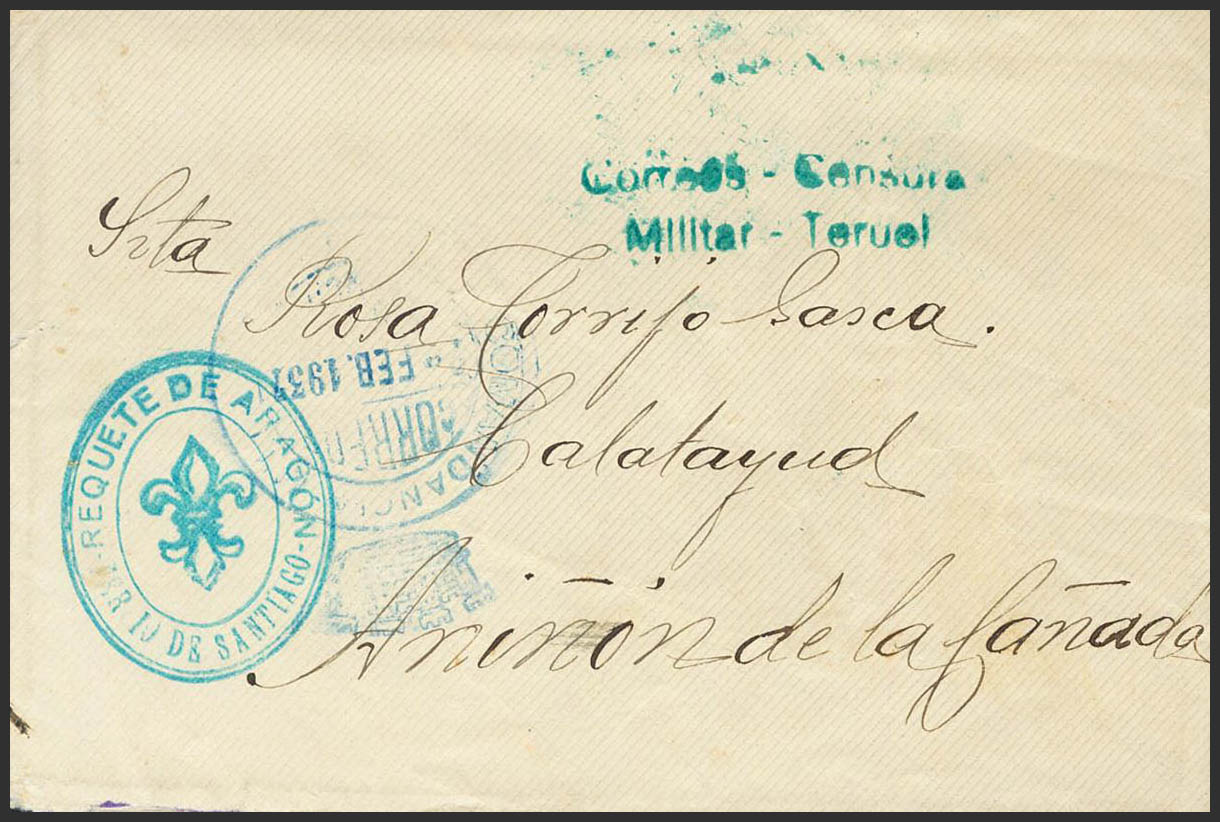 Correos - Censura
Militar - Teruel
Srta
Rosa Torrijo Gasca.
Calatayud
Aniñón de la Cañada
REQUETE DE ARAGÓN
DE SANTIAGO
FEB. 1937
CORREO